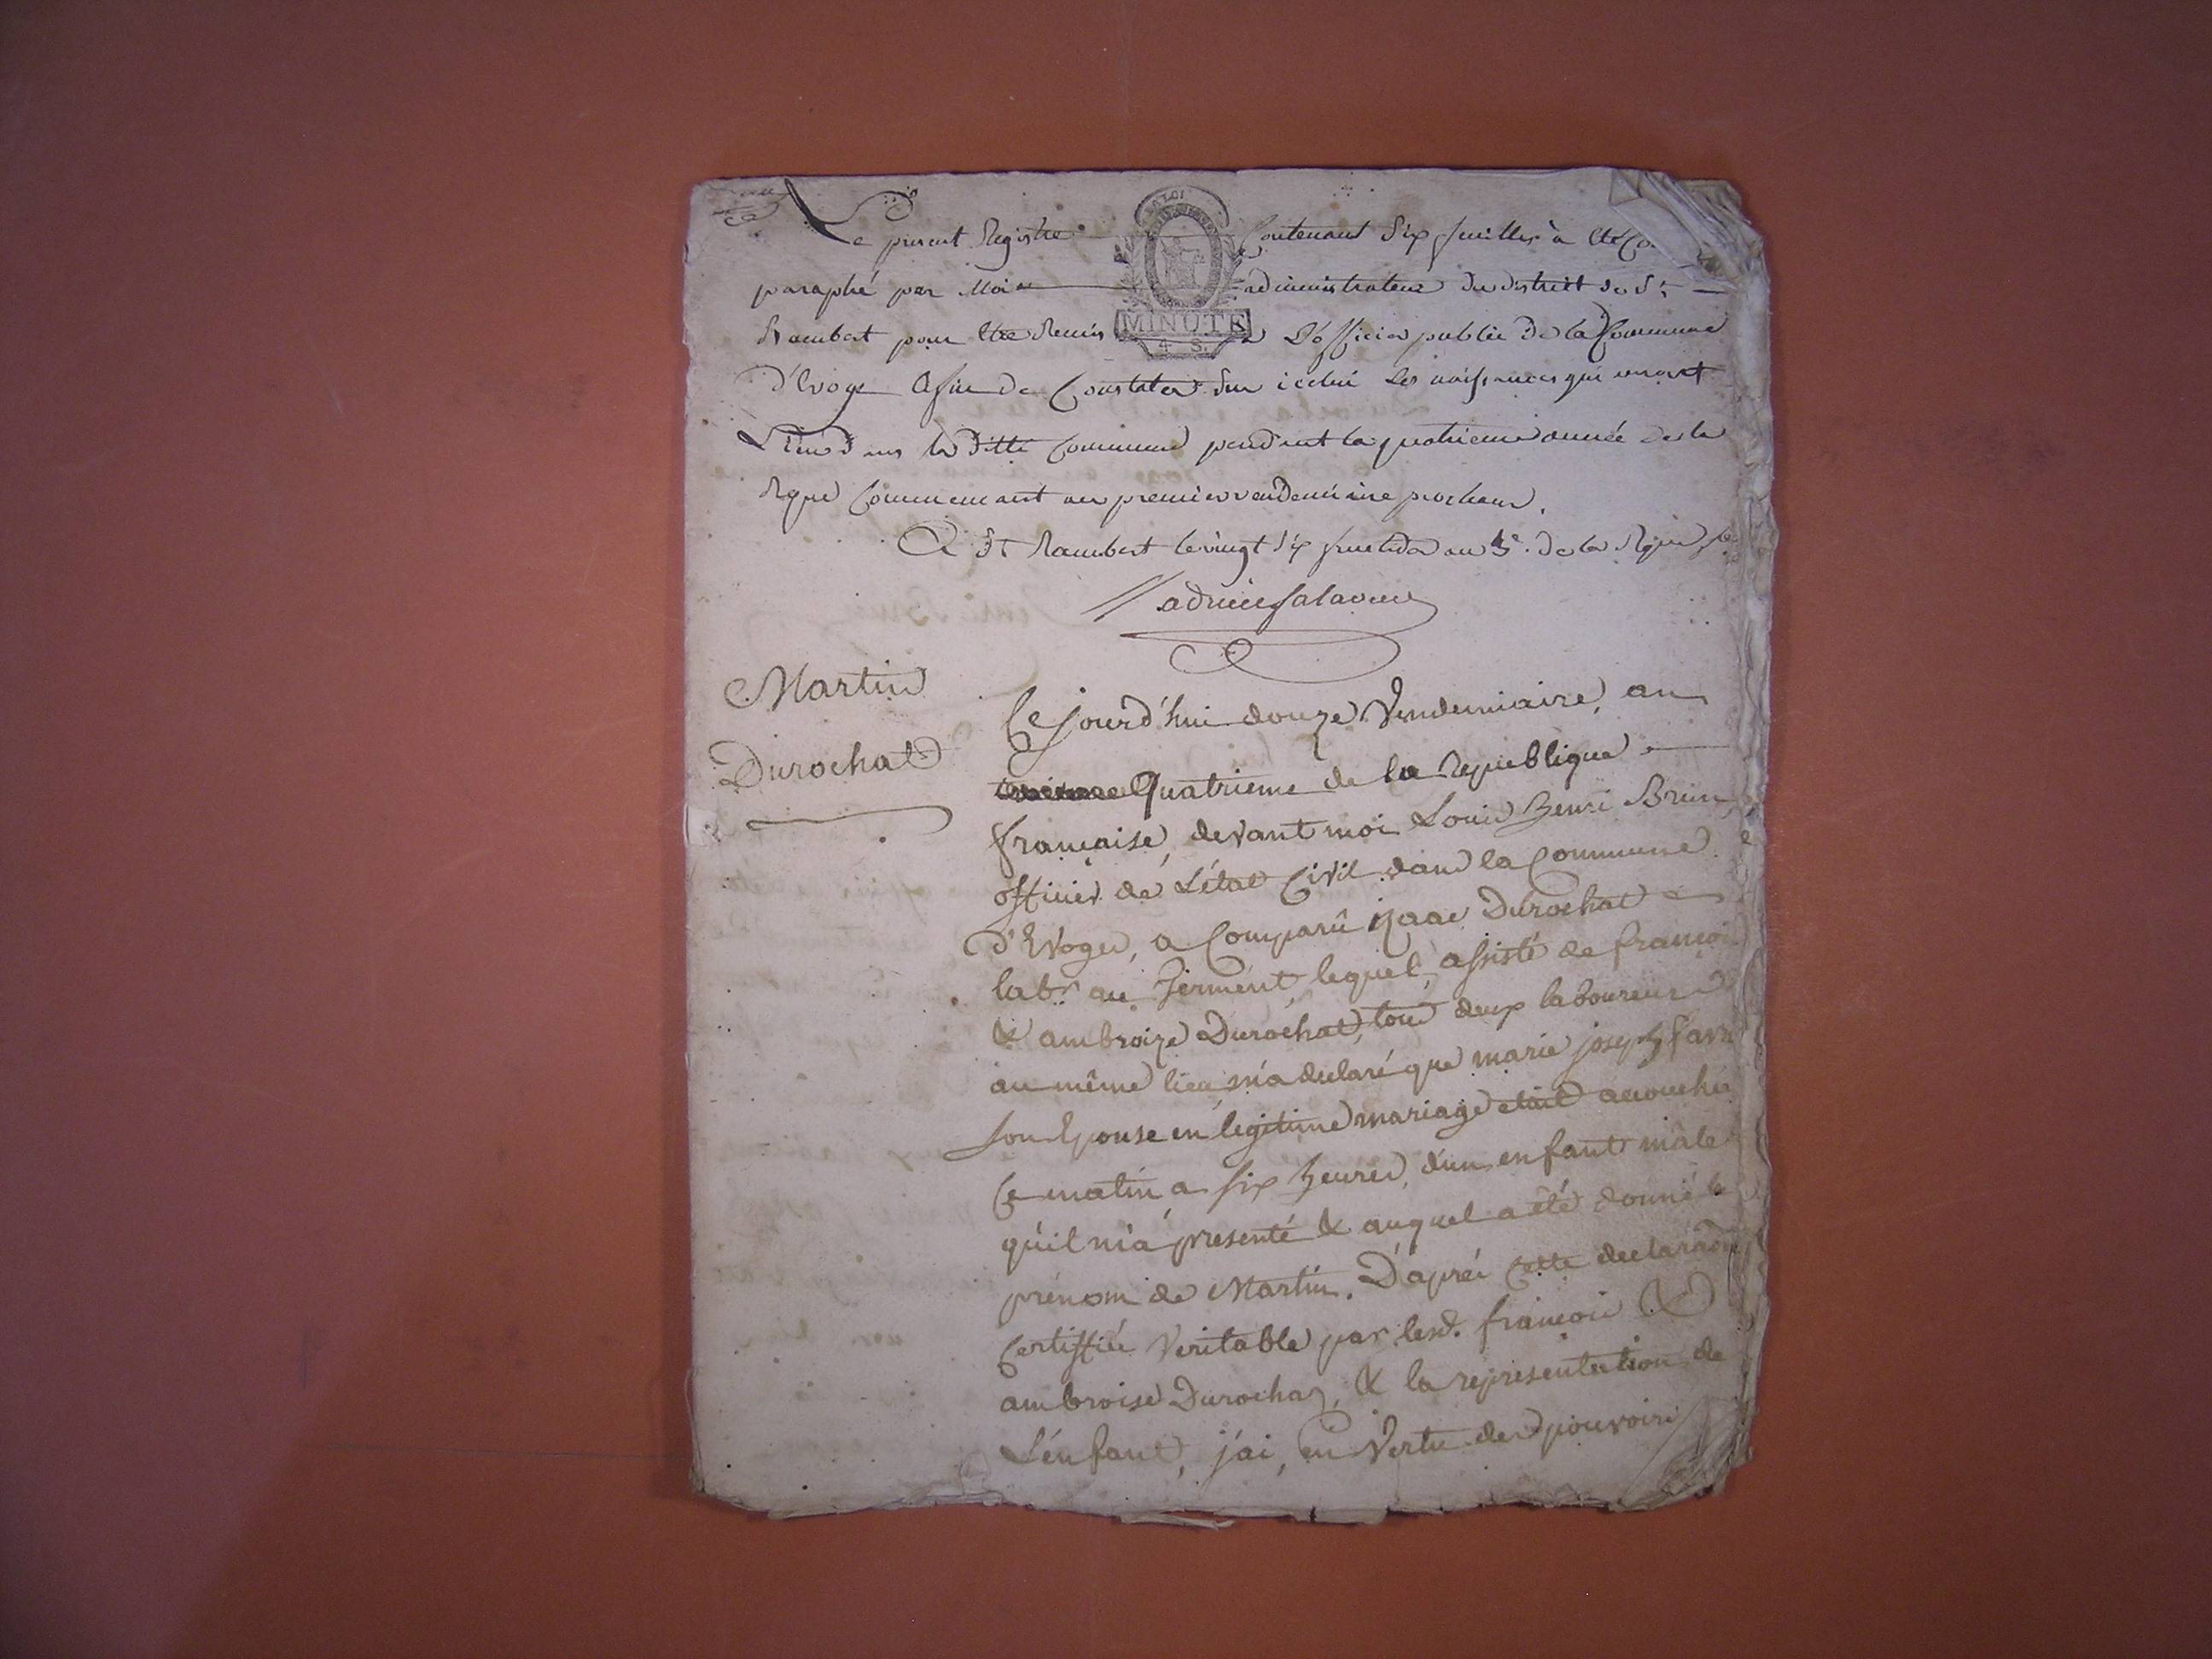 Le present Registre Contenant Six feuilles à été
LA LOI
paraphé par Moi administrateur du district de St
MINUTE
4. S.
Rambert pour être Remis à L'officier public de la Commune
d'Evoge Afin de Constater Sur icelui Les naissances qui auront
Lieu dans la ditte Commune pendant la quatrieme année de la
Rque Commencant au premier vendemiaire prochain.
A St Rambert le vingt Six fructidor an 3e. de la Rque
Martin
Durochat
Ce jourd'hui douze Vendemiaire, an
Quatrieme de la Republique
française, devant moi Louis henri Brun,
officier de L'état Civil dans la Commune
d'Evoges, a Comparû izaac Durochat
labr. au Jerment, lequel, assisté de françois
& ambroize Durochat, tous deux laboureurs
au même lieu, m'a declaré que marie joseph favre
son Epouse en legitime mariage etait accouchée
Ce matin a six heures, d'un enfant mâle
qu'il m'a presenté & auquel a été donné le
prenom de Martin. D'aprés cette declaraon
Certiffiée Veritable par lesd. françois &
ambroise Durochat, & la representation de
L'enfant, j'ai, en Vertu des pouvoirs